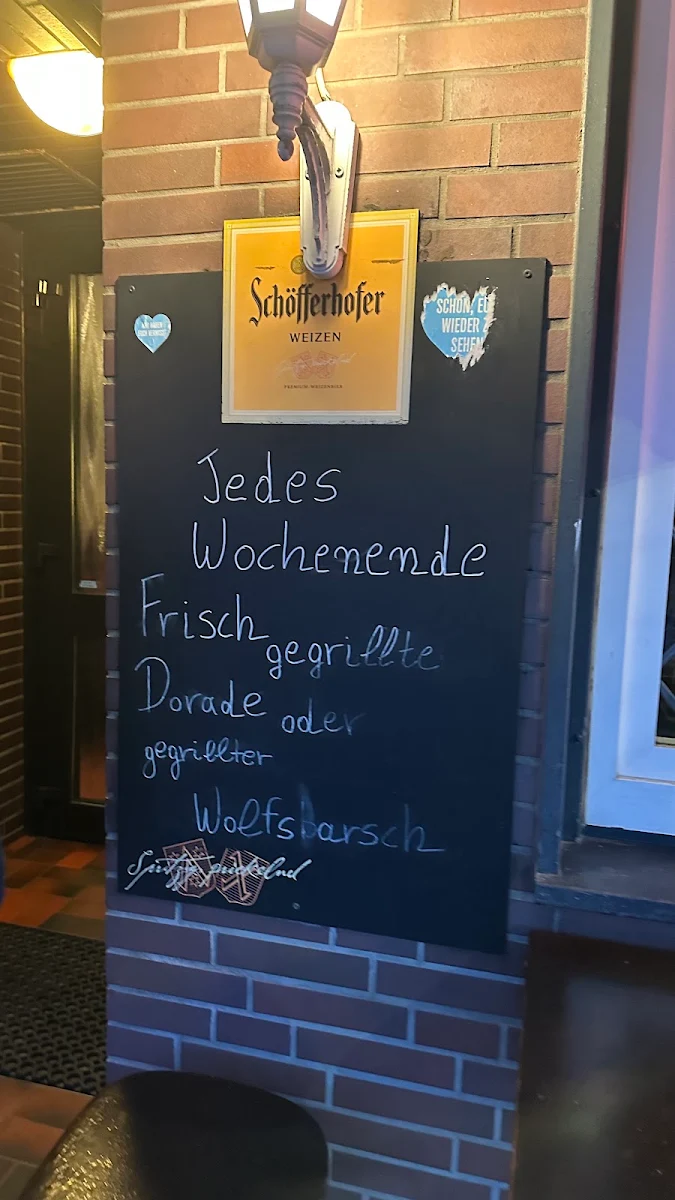 Schöfferhofer
WEIZEN
PREMIUM-WEISSBIER
WIR HABEN
EUCH VERMISST
SCHÖN, EU
WIEDER Z
SEHEN
Jedes
Wochenende
Frisch
gegrillte
Dorade oder
gegrillter
Wolfsbarsch
Spritzig prickelnd